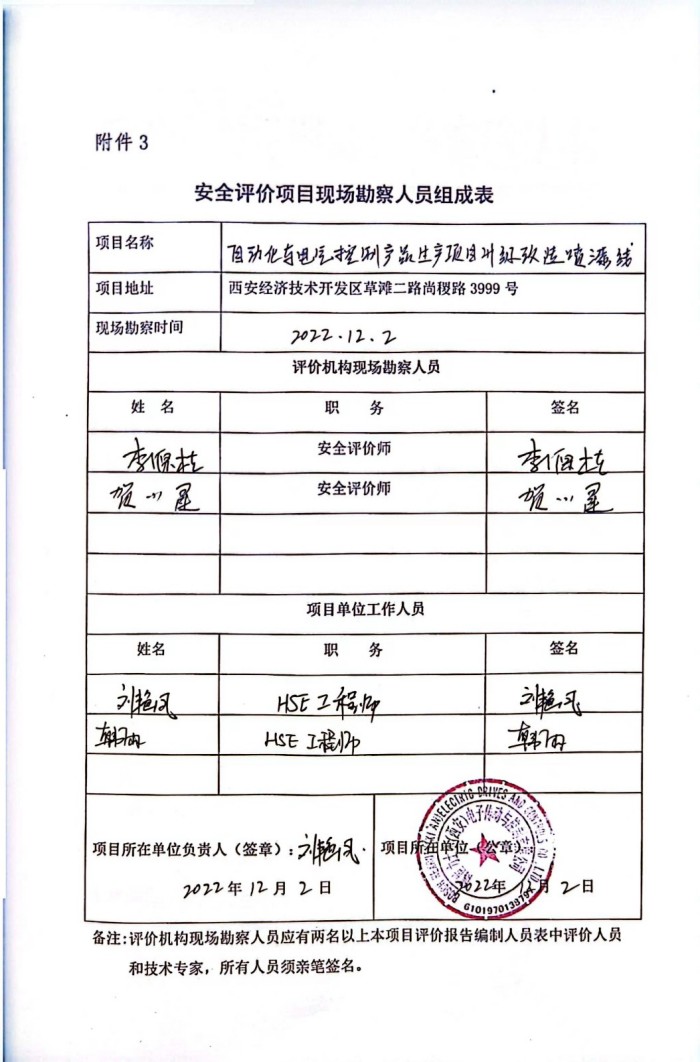 附件 3
安全评价项目现场勘察人员组成表
项目名称
自动化与电气控制产品生产项目升级改造喷漆线
项目地址
西安经济技术开发区草滩二路尚稷路 3999 号
现场勘察时间
2022.12.2
评价机构现场勘察人员
姓 名 职 务 签名
李保柱 安全评价师 李保柱
贺小星 安全评价师 贺小星
项目单位工作人员
姓名 职 务 签名
刘艳凤 HSE 工程师 刘艳凤
韩丽 HSE 工程师 韩丽
项目所在单位负责人（签章）：刘艳凤.
2022年 12月 2日
项目所在单位（公章）
2022年 12月 2日
备注：评价机构现场勘察人员应有两名以上本项目评价报告编制人员表中评价人员
和技术专家，所有人员须亲笔签名。